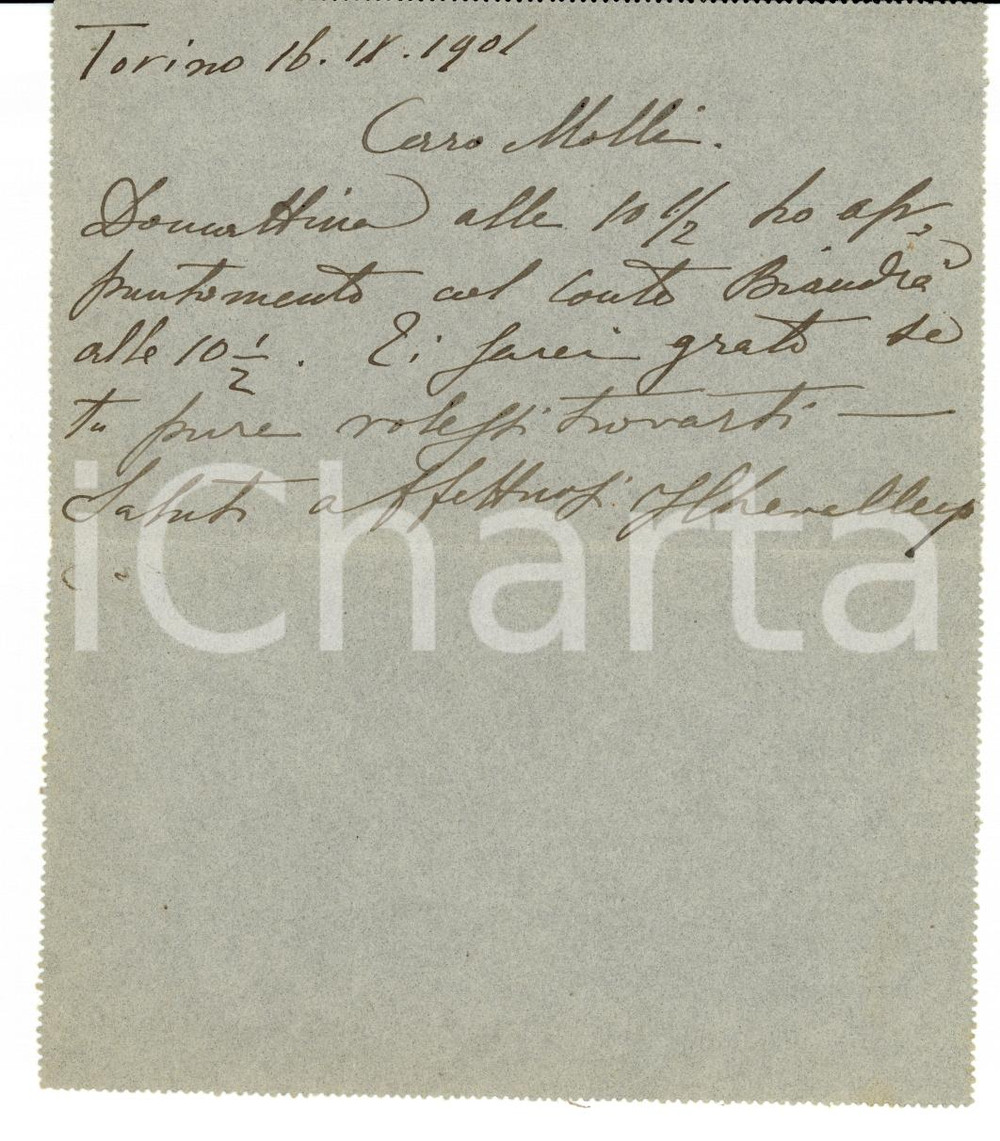 Torino 16. IX. 1901
Caro Molli.
Domattina alle 10 1/2 ho ap-
puntamento col Conte Biandrà
alle 10 1/2. Ti sarei grato se
tu pure volessi trovarti —
Saluti affettuosi
iCharta